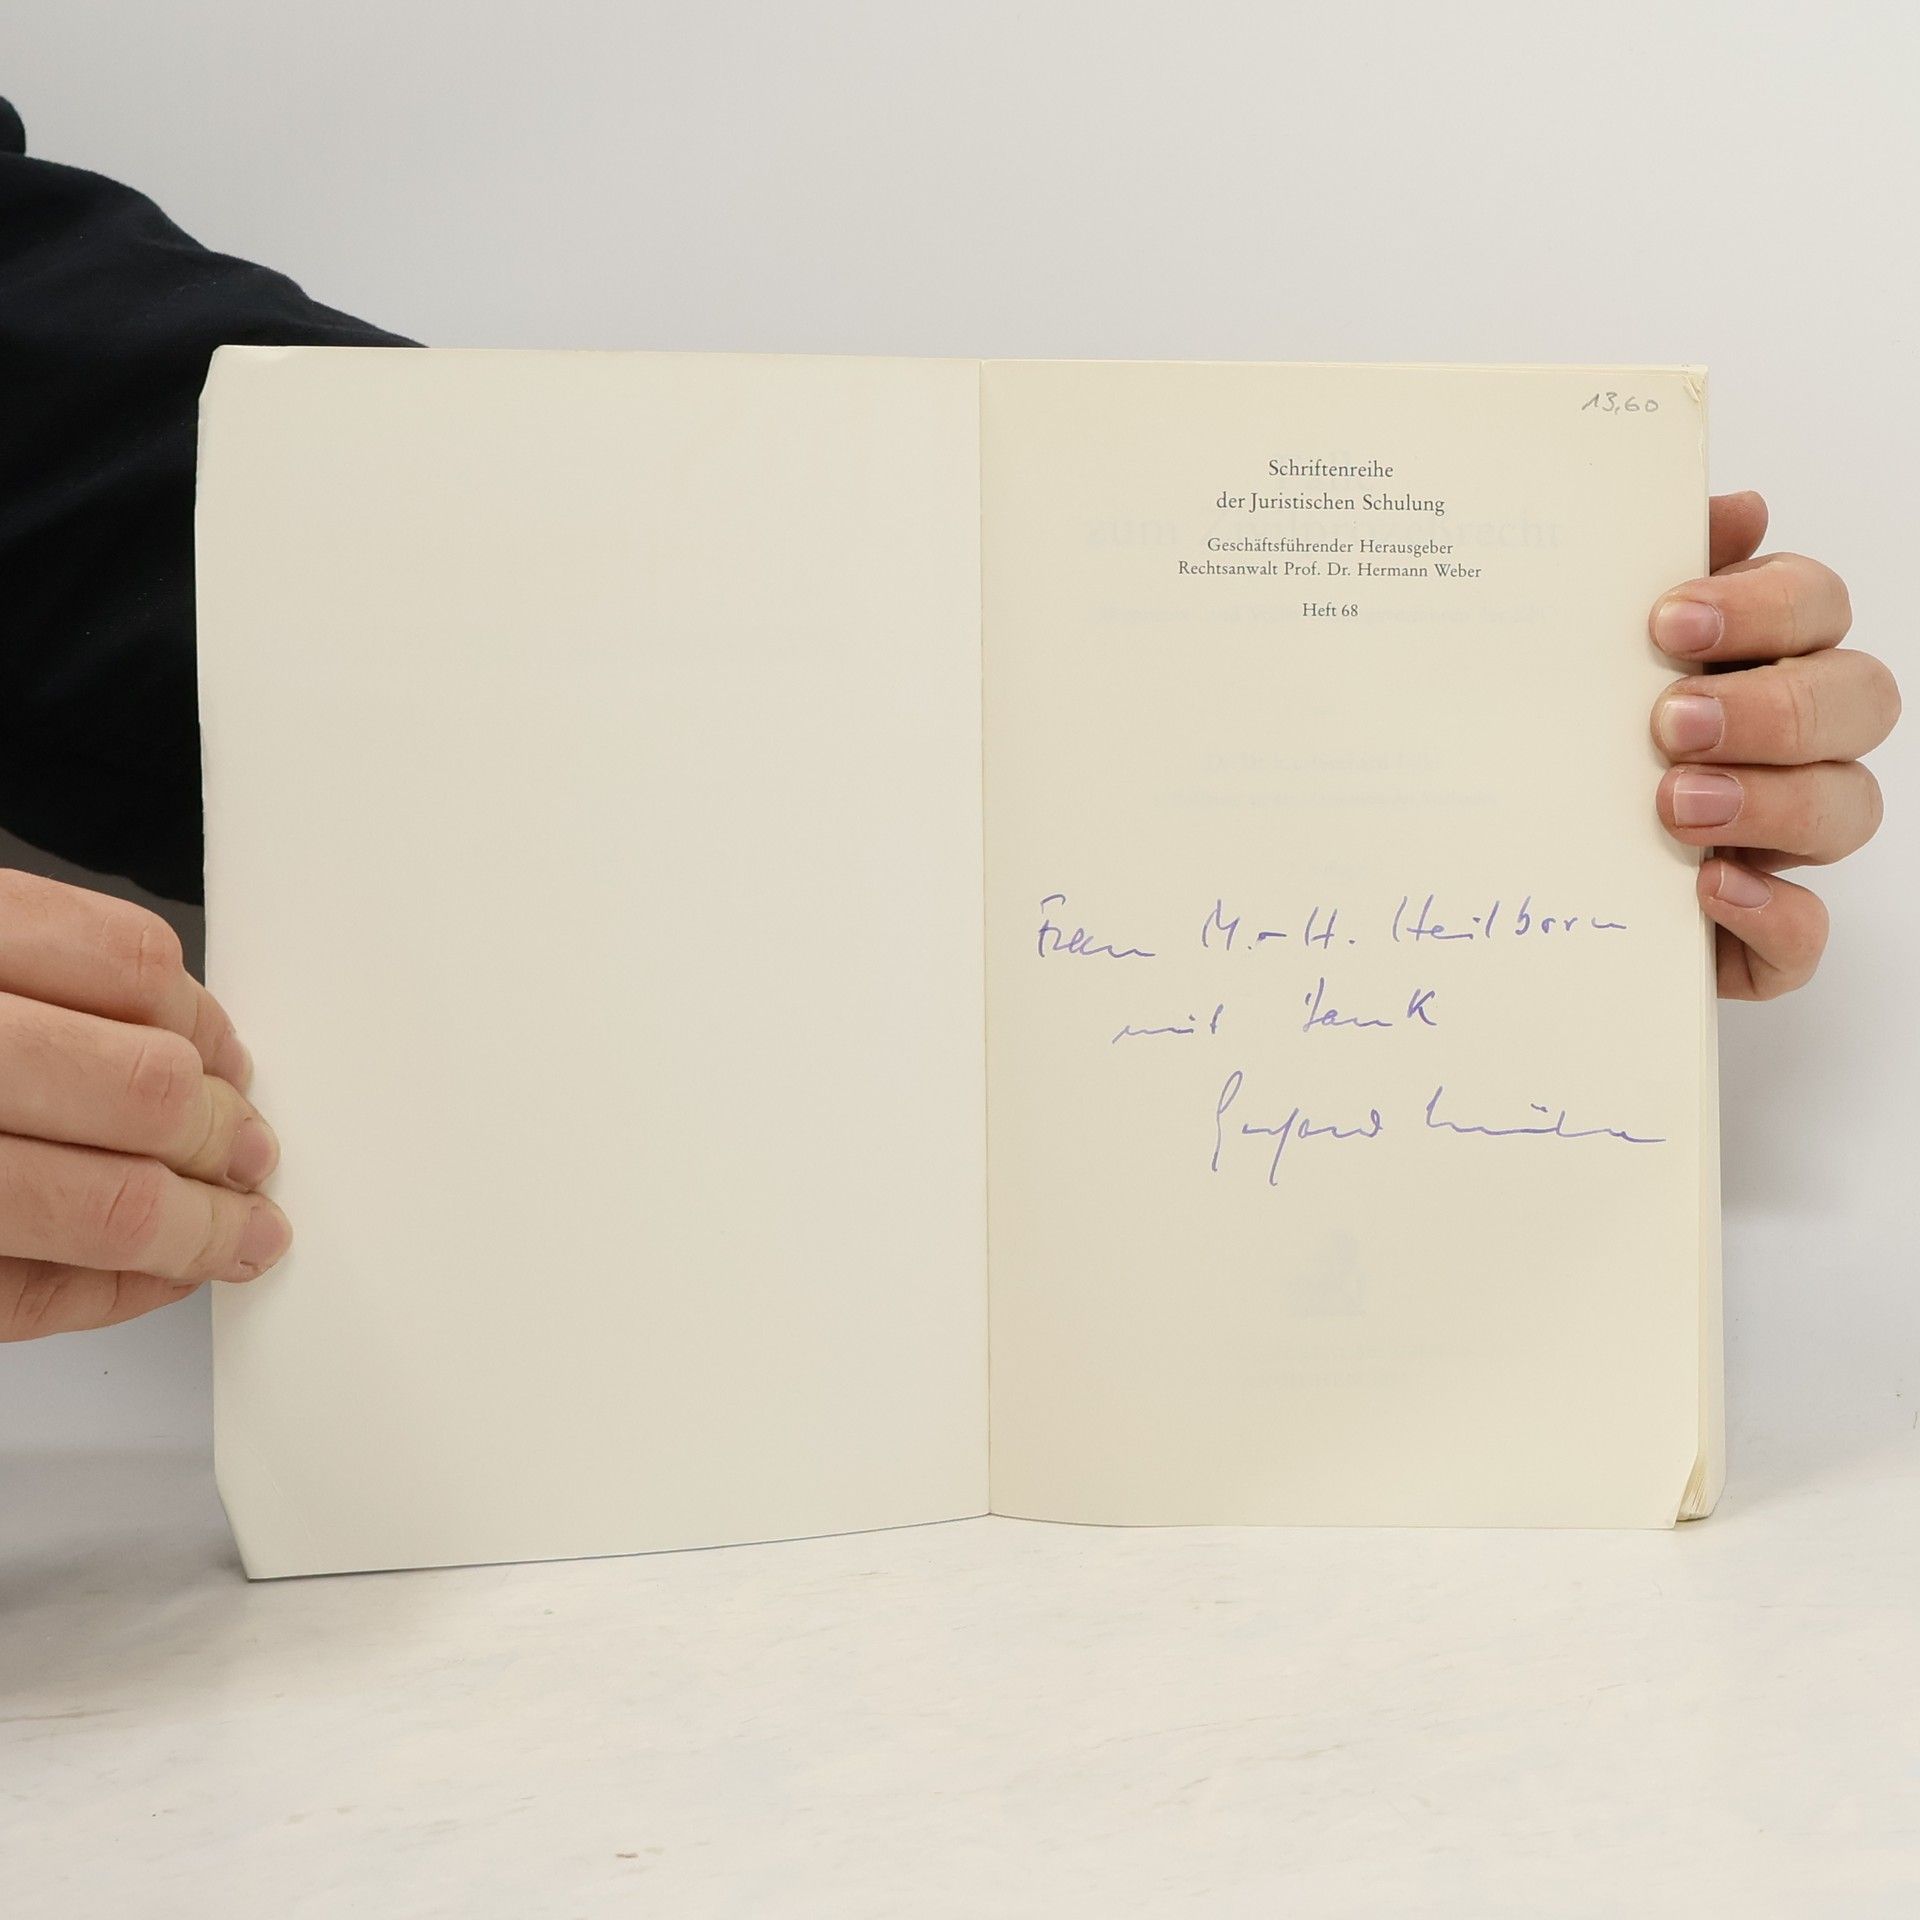 13,60
Schriftenreihe
der Juristischen Schulung
Geschäftsführender Herausgeber
Rechtsanwalt Prof. Dr. Hermann Weber
Heft 68
Frau M.-H. Heilborn
mit Dank